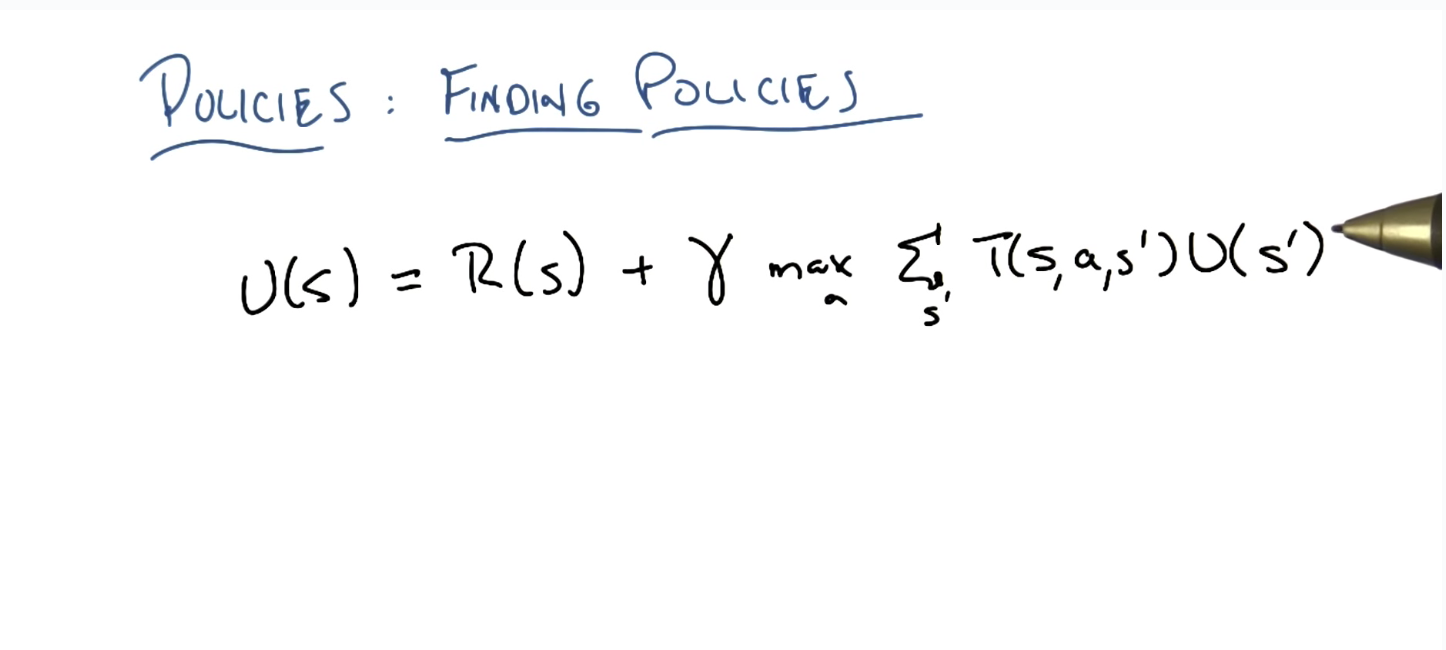 POLICIES : FINDING POLICIES
U(s) = R(s) + γ max_a Σ_s' T(s,a,s')U(s')